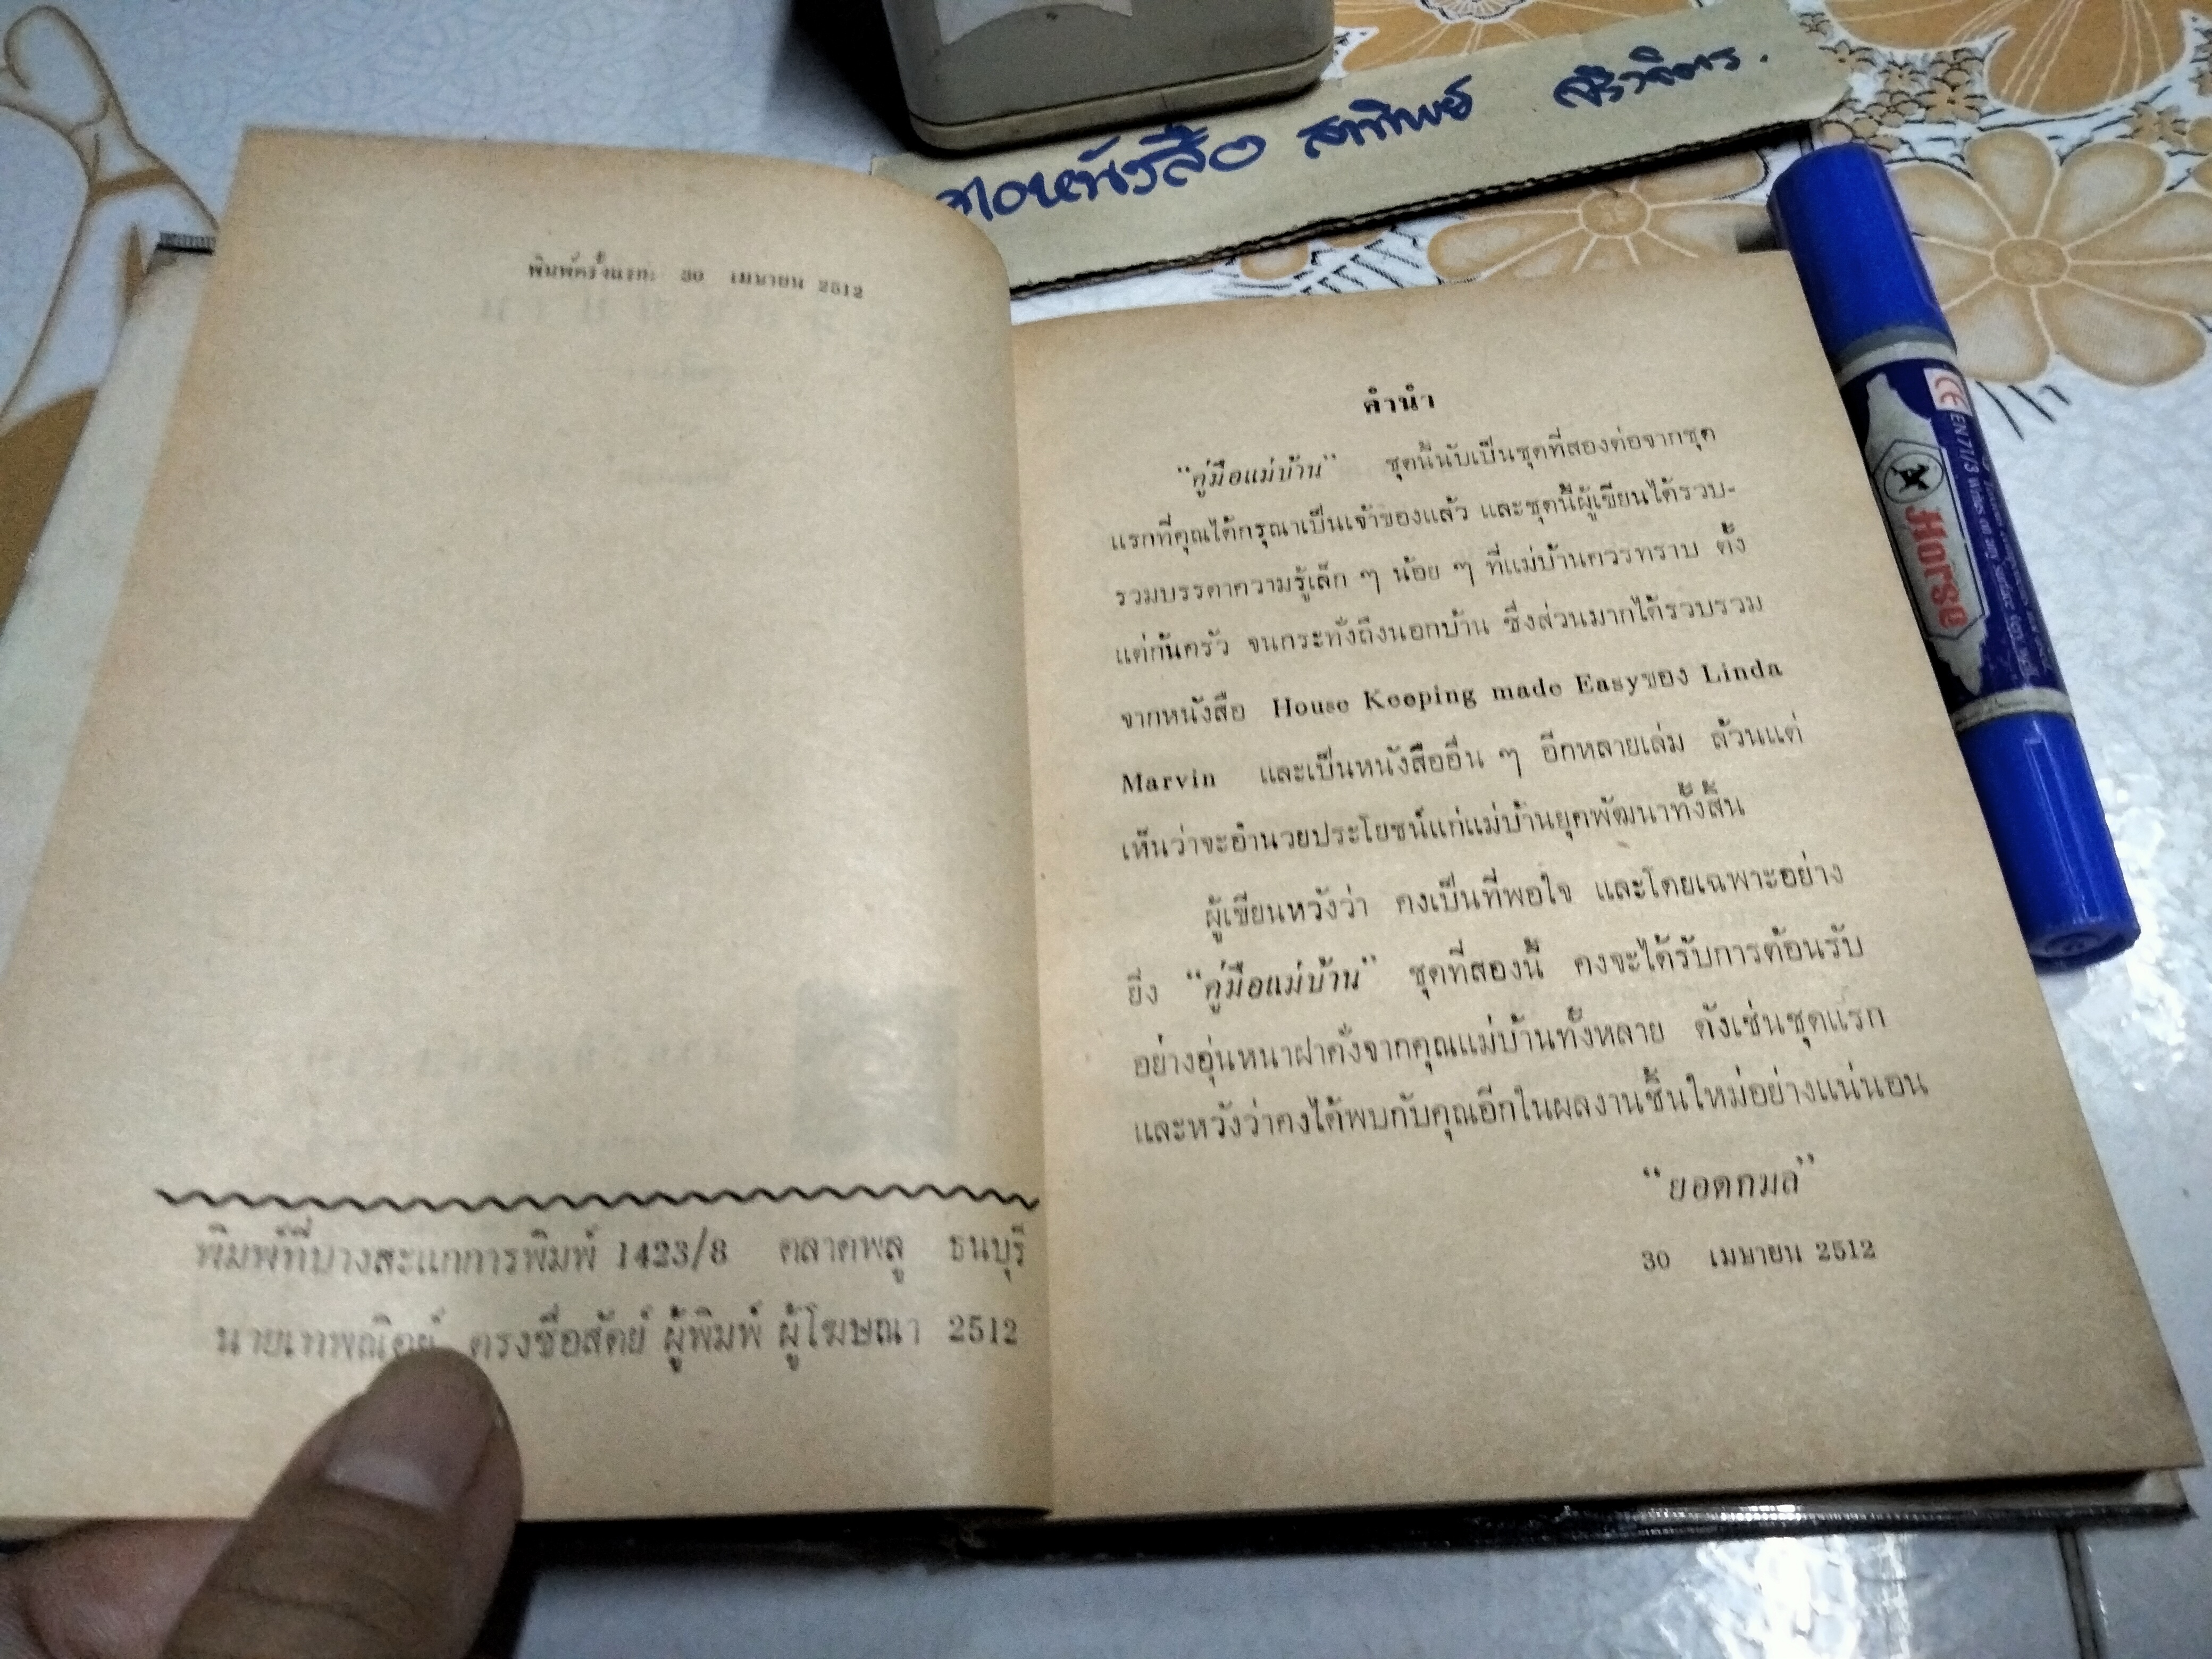 หนังสือ
พิมพ์ครั้งแรก 30 เมษายน 2512
พิมพ์ที่บางสะแกการพิมพ์ 1423/8 ตลาดพลู ธนบุรี
ตรงซื่อสัตย์ ผู้พิมพ์ ผู้โฆษณา 2512
คำนำ
“คู่มือแม่บ้าน” ชุดนี้นับเป็นชุดที่สองต่อจากชุด
แรกที่คุณได้กรุณาเป็นเจ้าของแล้ว และชุดนี้ผู้เขียนได้รวบ-
รวมบรรดาความรู้เล็ก ๆ น้อย ๆ ที่แม่บ้านควรทราบ ตั้ง
แต่ก้นครัว จนกระทั่งถึงนอกบ้าน ซึ่งส่วนมากได้รวบรวม
จากหนังสือ House Keeping made Easyของ Linda
Marvin และเป็นหนังสืออื่น ๆ อีกหลายเล่ม ล้วนแต่
เห็นว่าจะอำนวยประโยชน์แก่แม่บ้านยุคพัฒนาทั้งสิ้น
ผู้เขียนหวังว่า คงเป็นที่พอใจ และโดยเฉพาะอย่าง
ยิ่ง “คู่มือแม่บ้าน” ชุดที่สองนี้ คงจะได้รับการต้อนรับ
อย่างอุ่นหนาฝาคั่งจากคุณแม่บ้านทั้งหลาย ดังเช่นชุดแรก
และหวังว่าคงได้พบกับคุณอีกในผลงานชิ้นใหม่อย่างแน่นอน
“ยอดกมล”
30 เมษายน 2512
Horse
EN71/3